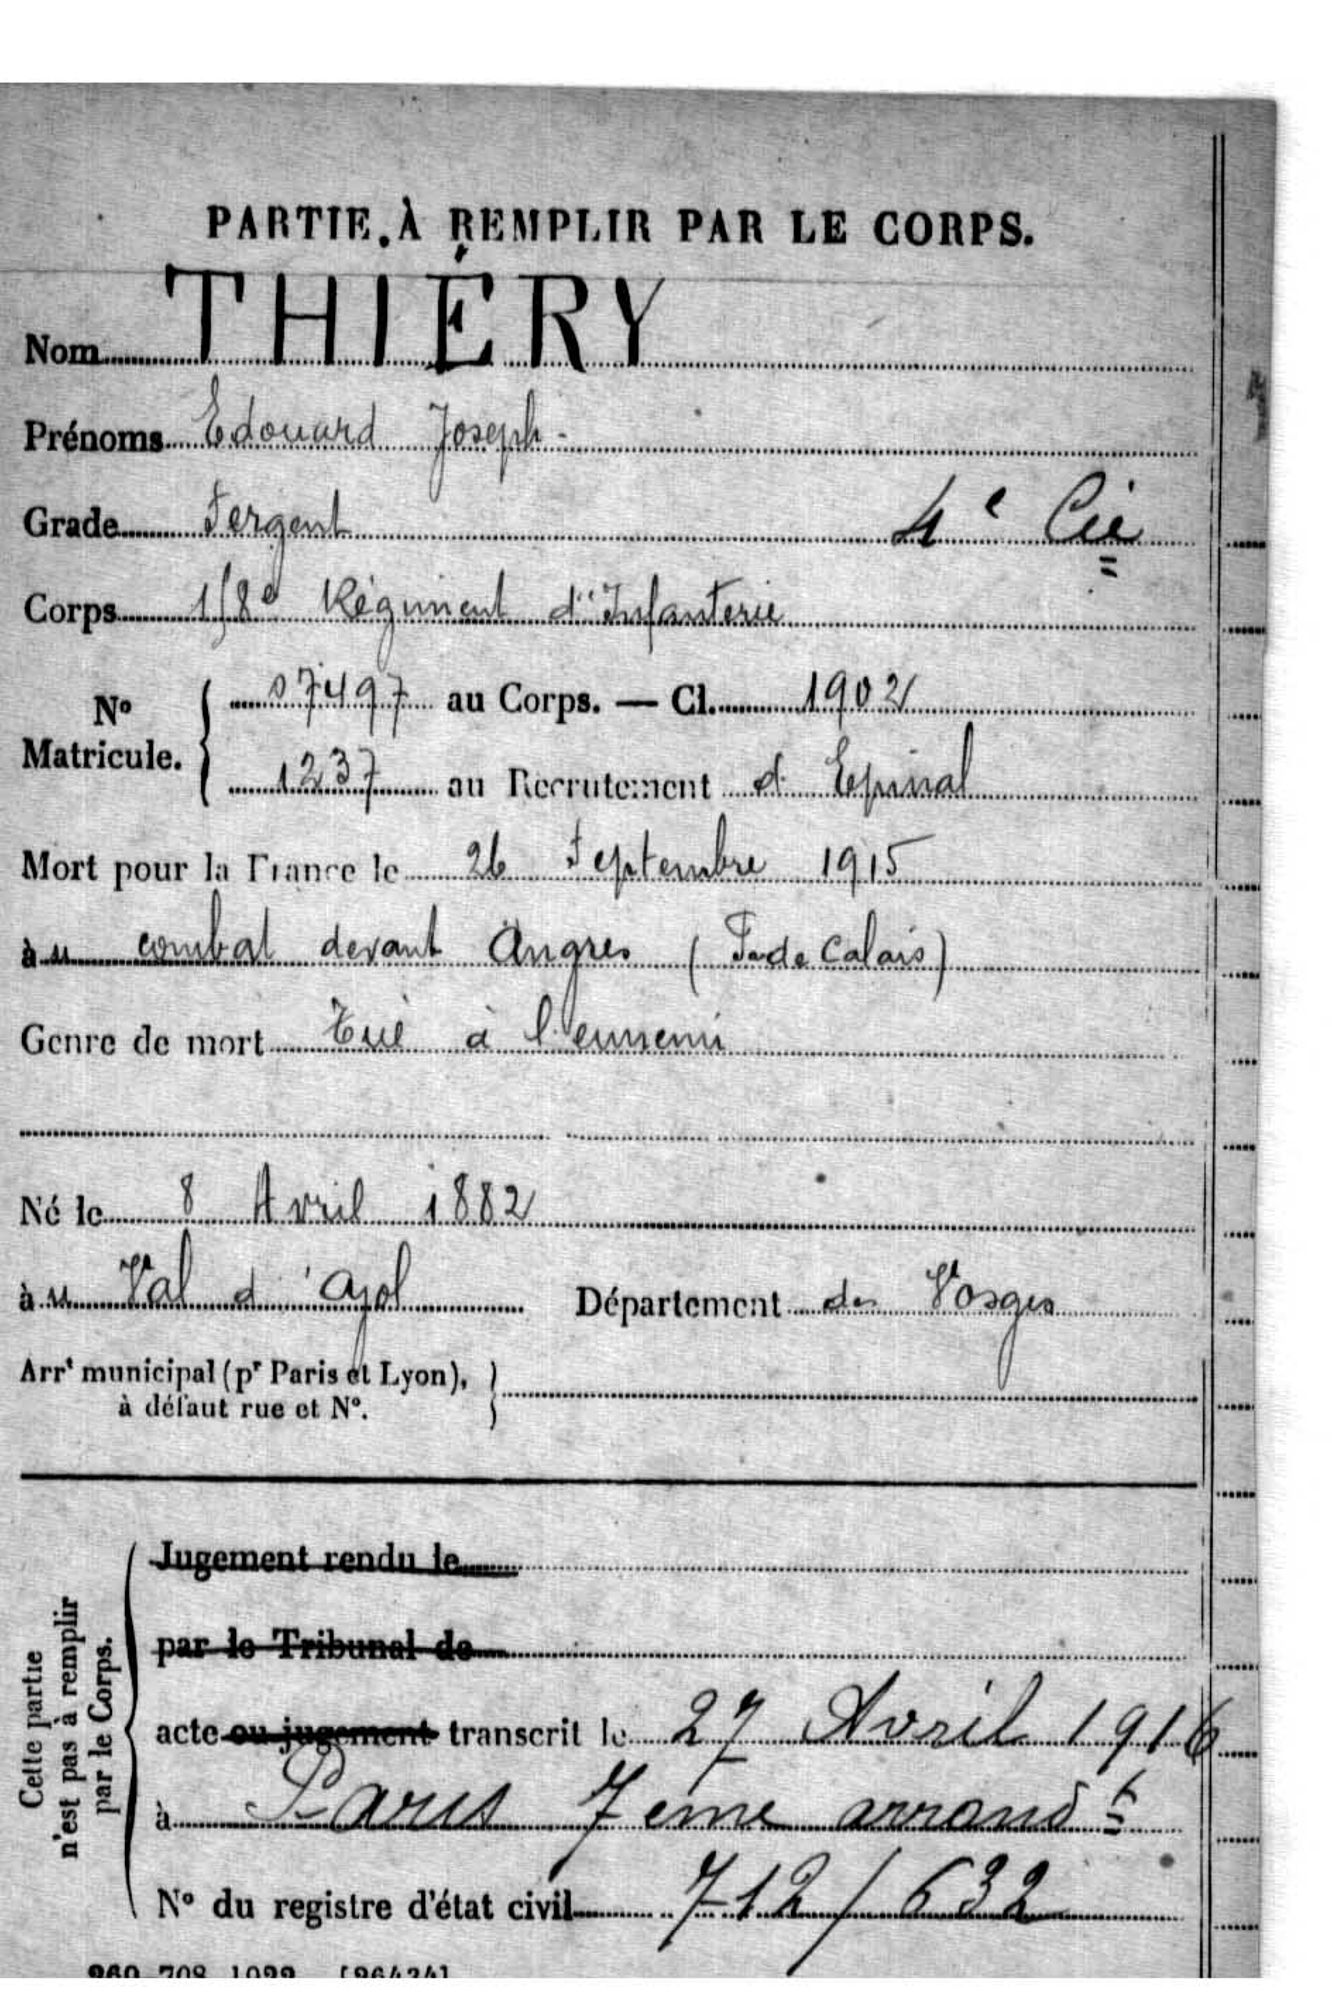 PARTIE À REMPLIR PAR LE CORPS.
Nom THIÉRY
Prénoms Edouard Joseph
Grade Sergent 4e Cie
Corps 158e Régiment d'Infanterie
No Matricule. 07497 au Corps. — Cl. 1902
1237 au Recrutement d' Epinal
Mort pour la France le 26 Septembre 1915
au combat devant Angres (Pas de Calais)
Genre de mort Tué à l'ennemi
Né le 8 Avril 1882
au Val d'Ajol Département des Vosges
Arrt municipal (pr Paris et Lyon),
à défaut rue et No.
Cette partie
n'est pas à remplir
par le Corps.
Jugement rendu le
par le Tribunal de
acte ou jugement transcrit le 27 Avril 1916
à Paris 7eme arrondt
No du registre d'état civil 712/632
260-708-1922. [26434]